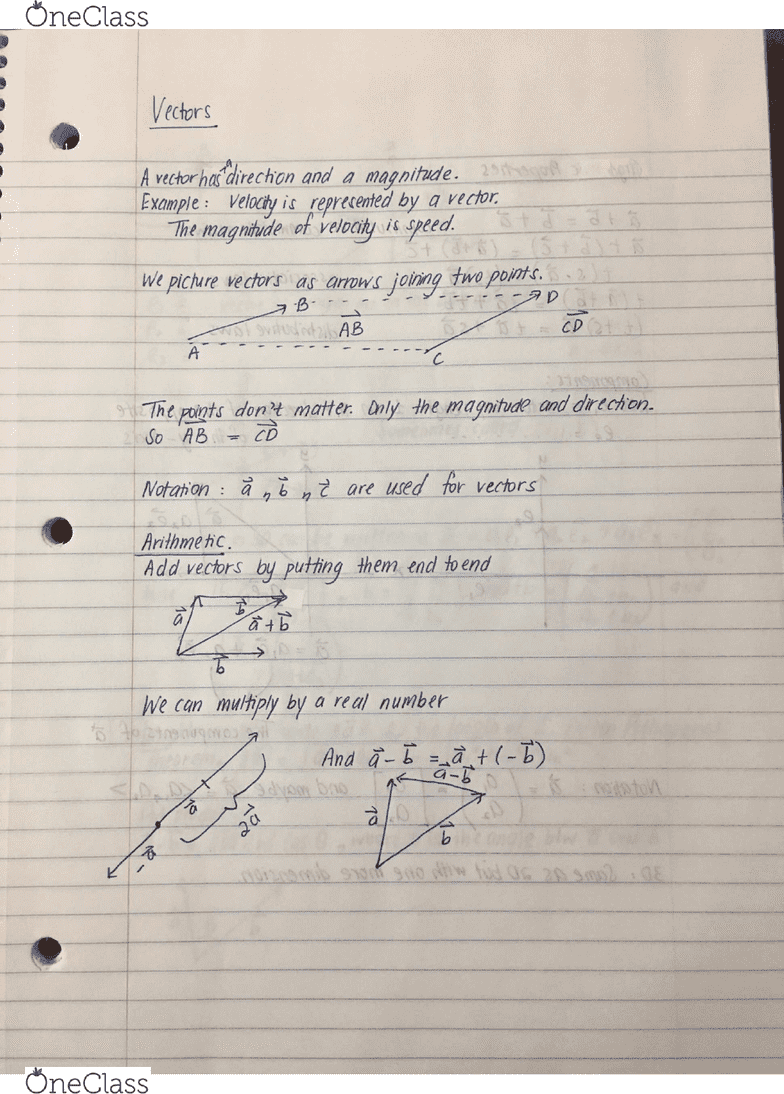 OneClass
Vectors
A vector has a direction and a magnitude.
Example: Velocity is represented by a vector.
The magnitude of velocity is speed.
We picture vectors as arrows joining two points.
B D
AB⃗ CD⃗
A C
The points don't matter. Only the magnitude and direction.
So AB⃗ = CD⃗
Notation: a⃗, b⃗, c⃗ are used for vectors
Arithmetic.
Add vectors by putting them end to end
a⃗ b⃗
a⃗+b⃗
b⃗
We can multiply by a real number
And a⃗ - b⃗ = a⃗ + (-b⃗)
a⃗-b⃗
a⃗ 2a⃗ a⃗ b⃗
-a⃗
OneClass